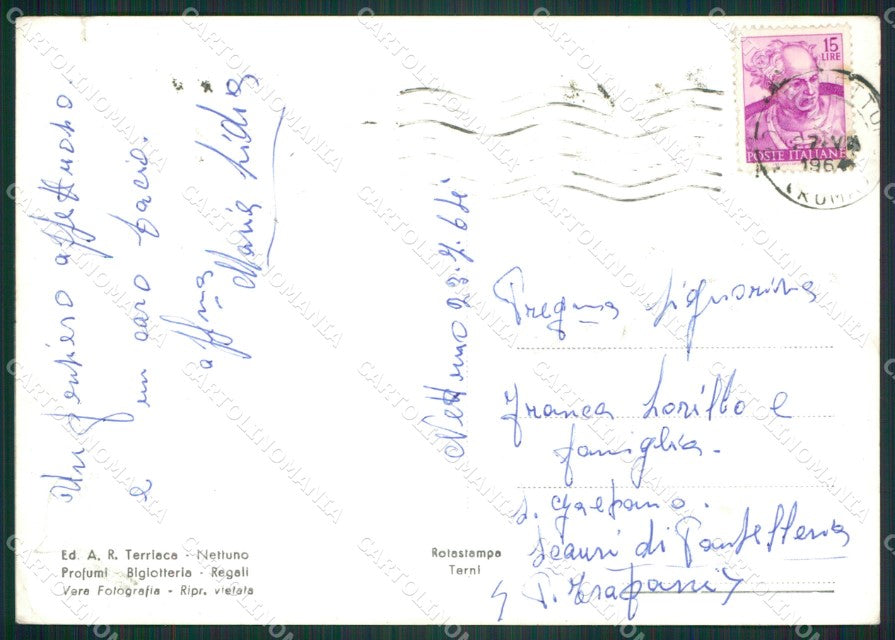 Un pensiero affettuoso.
e un caro bacio.
aff.ma
Maria Lidia
Nettuno 23.7.64
Preg.ma Signorina
Franca Lorillo e
famiglia.
S. Gaetano.
Scauri di Pantelleria
(P. Trapani)
15
LIRE
POSTE ITALIANE
1964
(ROMA)
Ed. A. R. Terriaca - Nettuno
Profumi - Bigiotteria - Regali
Vera Fotografia - Ripr. vietata
Rotastampa
Terni
CARTOLINOMANIA